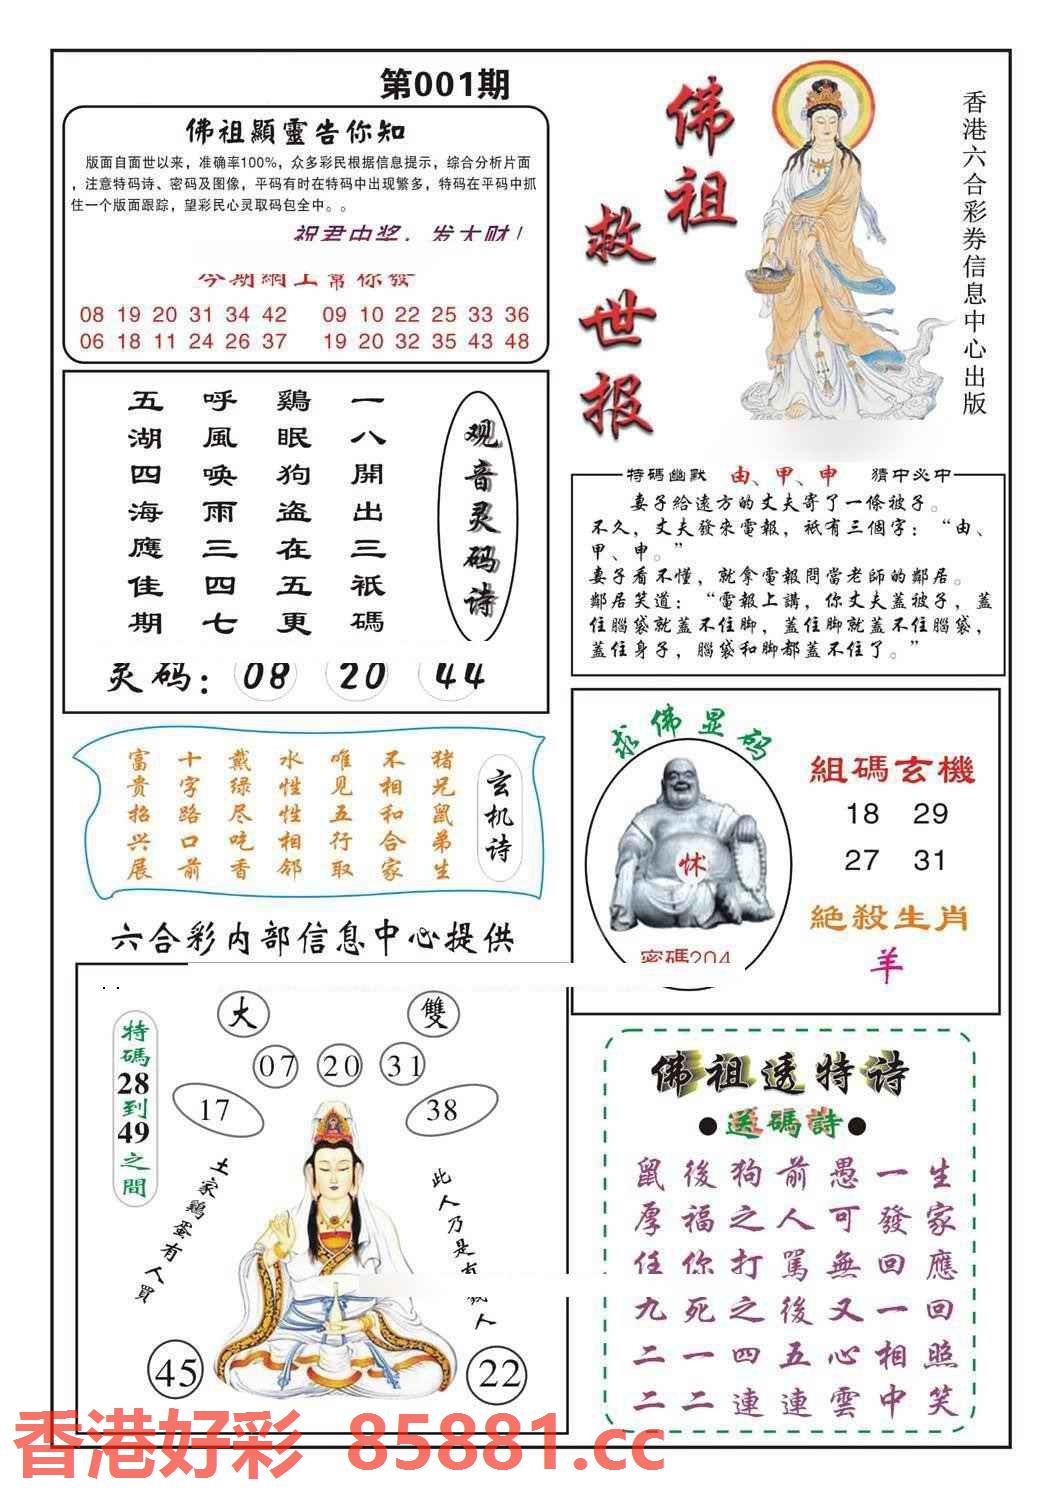 第001期
佛祖顯靈告你知
版面自面世以来，准确率100%，众多彩民根据信息提示，综合分析片面
，注意特码诗、密码及图像，平码有时在特码中出现繁多，特码在平码中抓
住一个版面跟踪，望彩民心灵取码包全中。。
祝君中奖，发大财！
今期網上幫你發
08 19 20 31 34 42 09 10 22 25 33 36
06 18 11 24 26 37 19 20 32 35 43 48
佛祖
救世报
香港六合彩券信息中心出版
观音灵码诗
一八開出三祇碼
鷄眠狗盗在五更
呼風唤雨三四七
五湖四海應佳期
灵码：08 20 44
特碼幽默 由、甲、申 猜中必中
妻子給遠方的丈夫寄了一條被子。
不久，丈夫發來電報，祇有三個字：“由、
甲、申。”
妻子看不懂，就拿電報問當老師的鄰居。
鄰居笑道：“電報上講，你丈夫蓋被子，蓋
住腦袋就蓋不住脚，蓋住脚就蓋不住腦袋，
蓋住身子，腦袋和脚都蓋不住了。”
玄机诗
猪兄鼠弟生
不相和合家
唯见五行取
水性性相邻
戴绿尽吃香
十字路口前
富贵招兴展
求佛显码
密碼204
組碼玄機
18 29
27 31
絶殺生肖
羊
六合彩内部信息中心提供
大 雙
07 20 31
17 38
特碼28到49之間
土家鷄蛋有人買
此人乃是有 人
45 22
佛祖透特诗
●送碼詩●
鼠後狗前愚一生
厚福之人可發家
任你打罵無回應
九死之後又一回
二一四五心相照
二二連連雲中笑
香港好彩 85881.cc